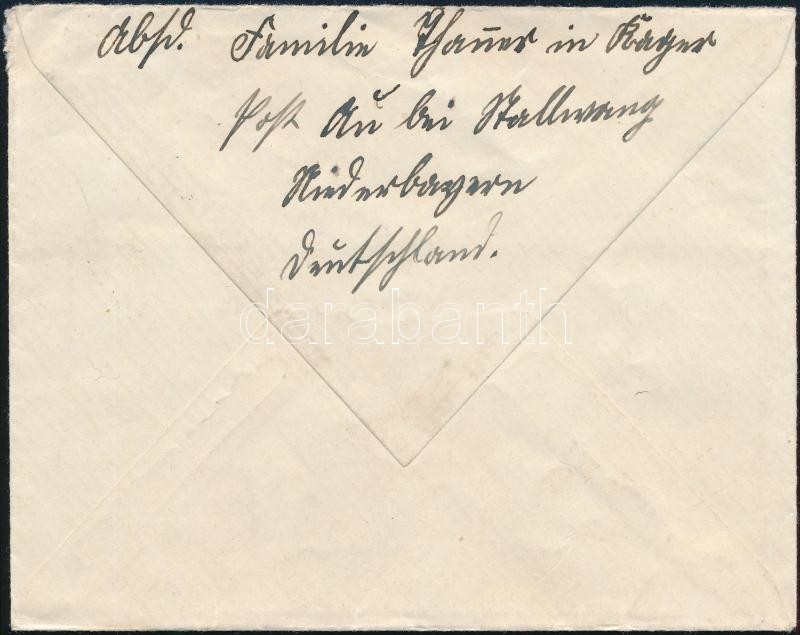 Absd. Familie Thanner in Kager
Post Au bei Stallwang
Niederbayern
Deutschland.
darabanth